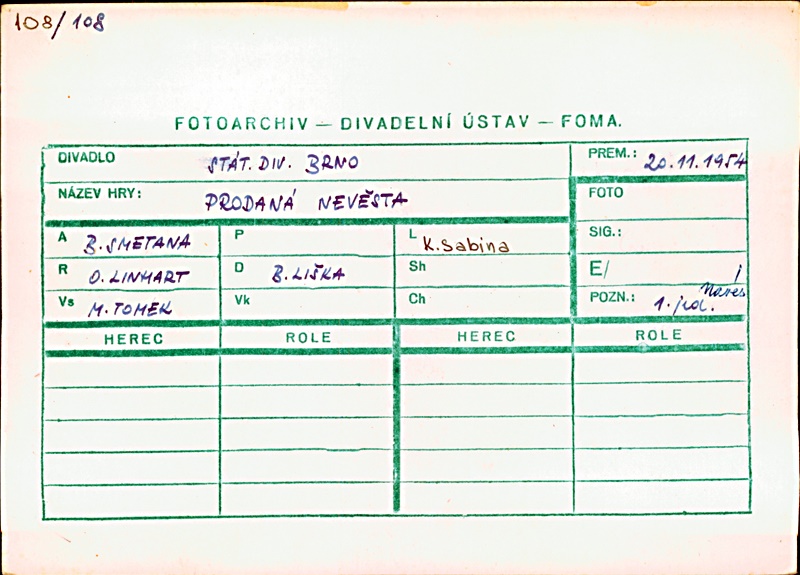 108/108
FOTOARCHIV — DIVADELNÍ ÚSTAV — FOMA.
DIVADLO STÁT. DIV. BRNO PREM.: 20.11.1954
NÁZEV HRY: PRODANÁ NEVĚSTA FOTO
A B. SMETANA P L K. Sabina SIG.:
R O. LINHART D B. LIŠKA Sh E/
Vs M. TOMEK Vk Ch POZN.: 1. jed.
HEREC ROLE HEREC ROLE